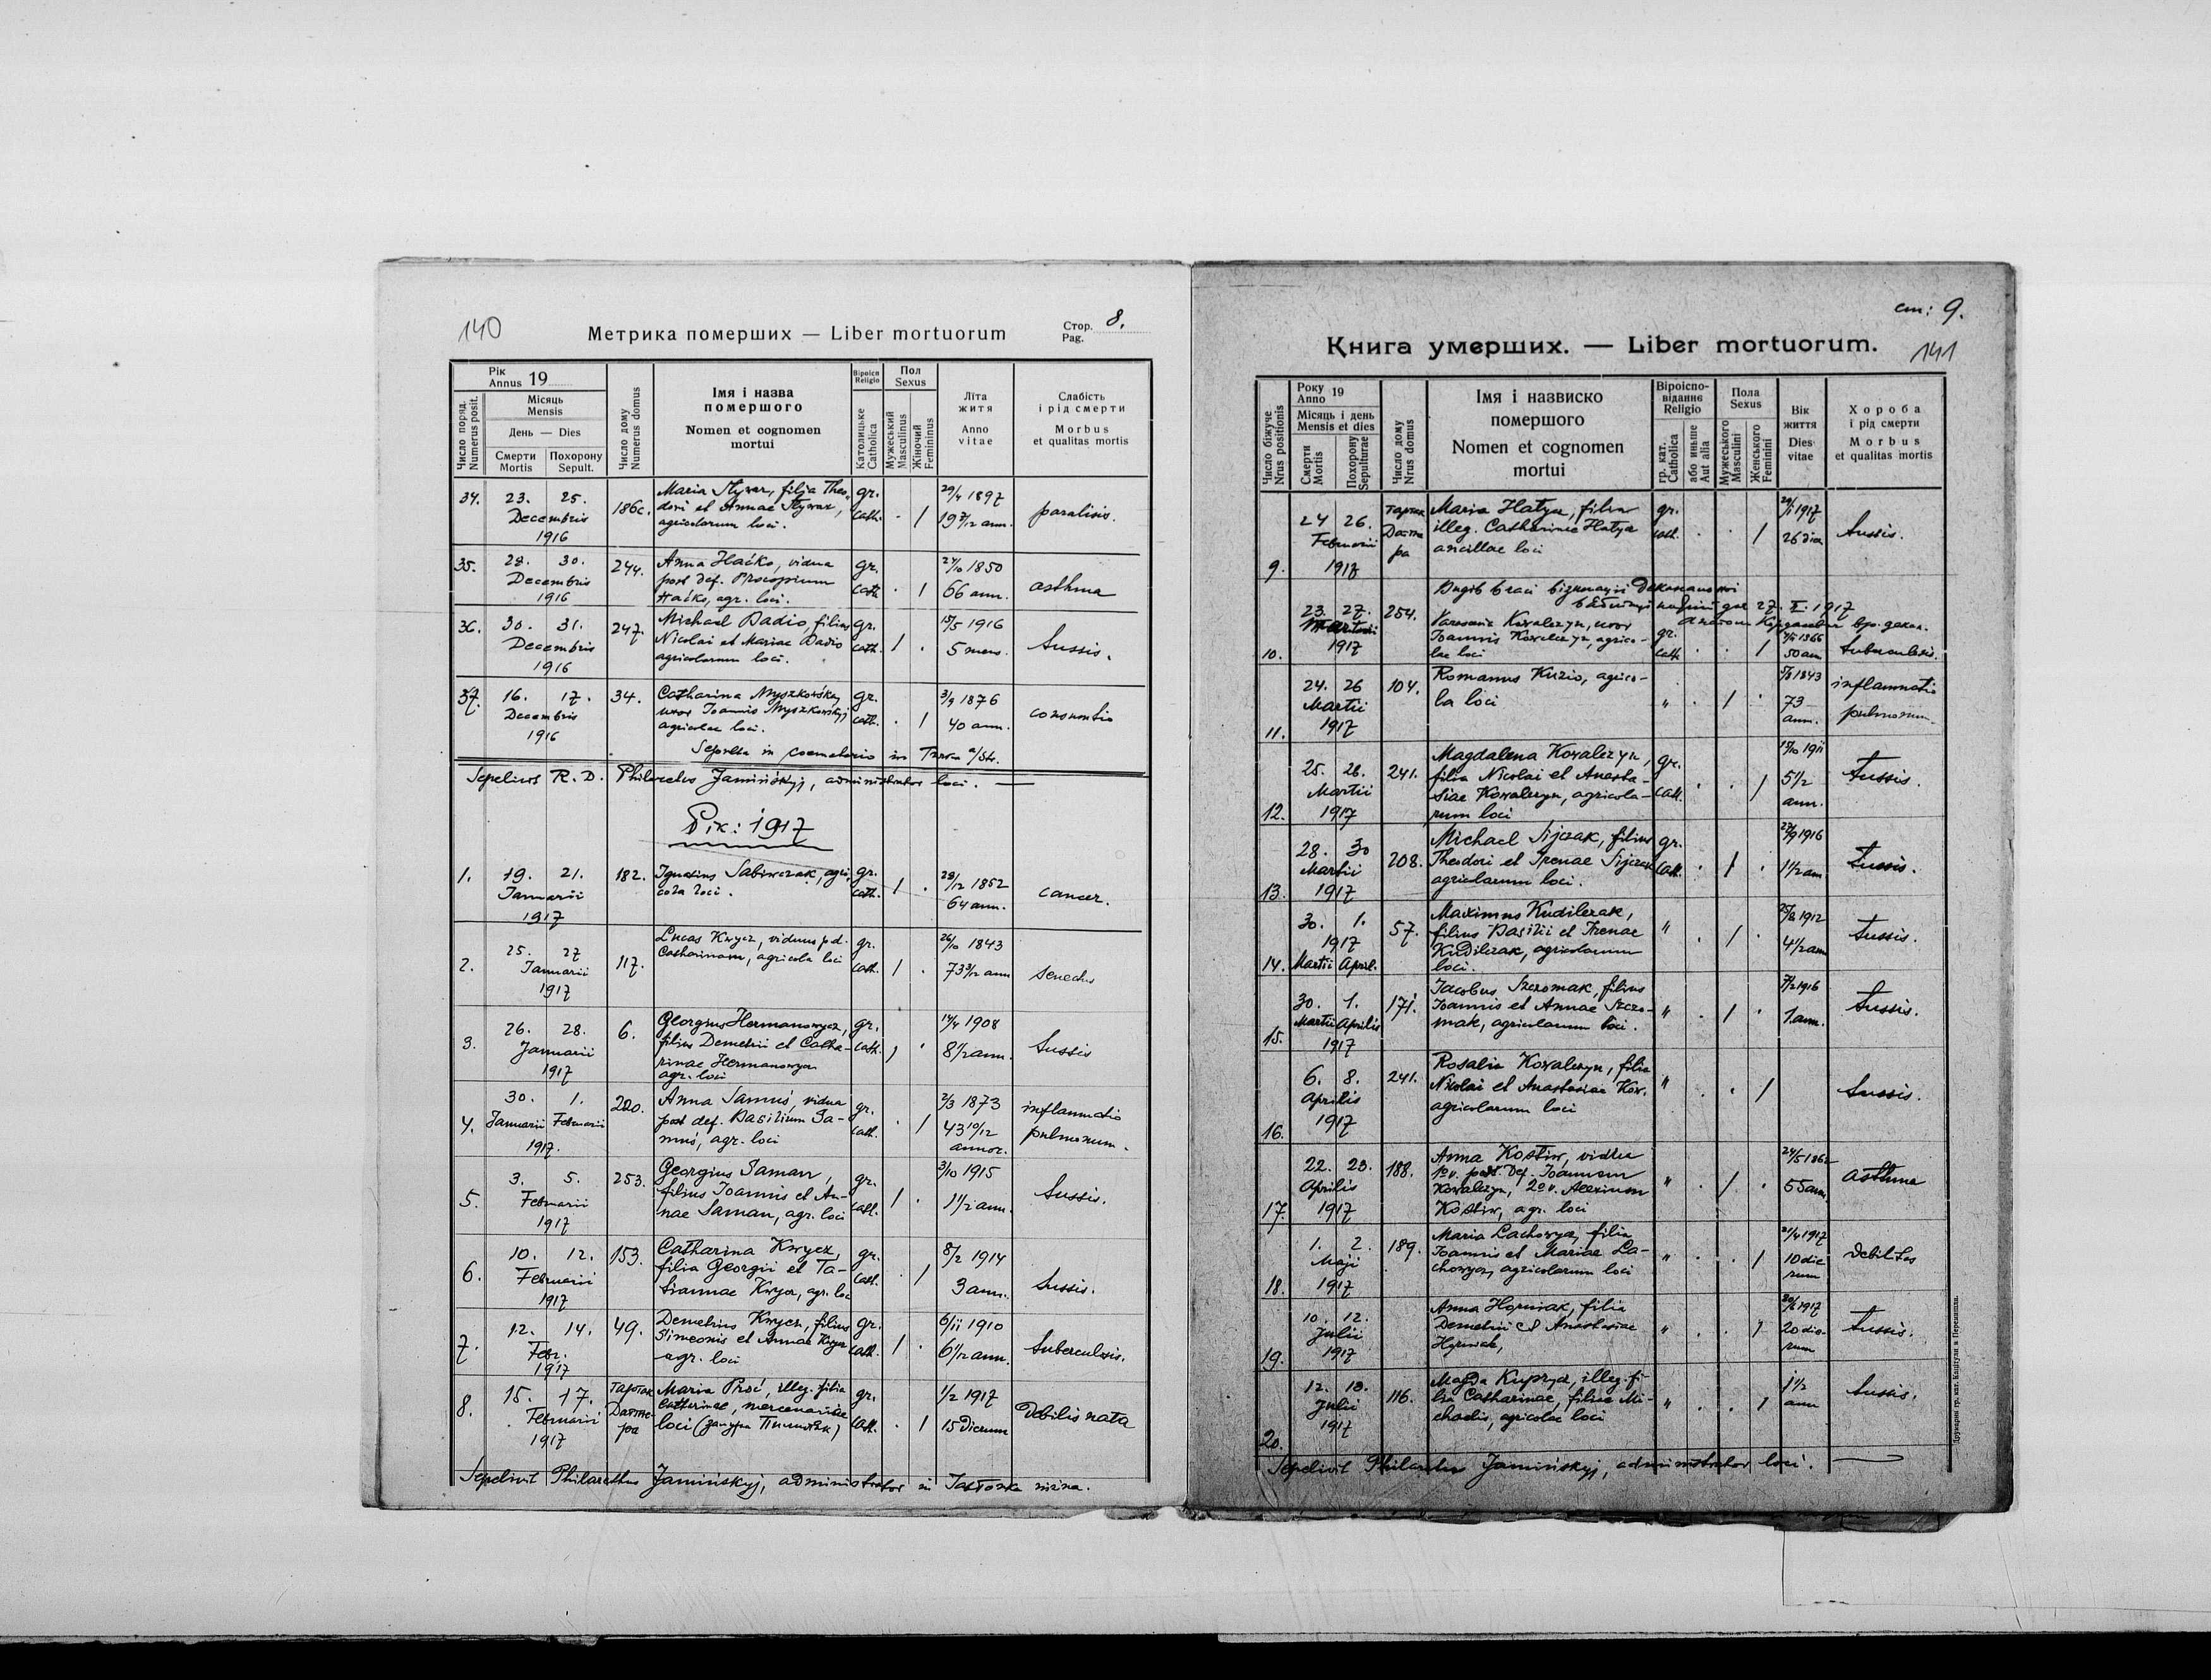 140
Метрика померших — Liber mortuorum
Стор. 8.
Pag.
Число поряд. Numerus posit.
Рік
Annus 19
Місяць
Mensis
День — Dies
Смерти
Mortis
Похорону
Sepult.
Число дому
Numerus domus
Імя і назва
помершого
Nomen et cognomen
mortui
Віроісп.
Religio
Католицьке
Catholica
Пол
Sexus
Мужеський
Masculinus
Жіночий
Femininus
Літа
житя
Anno
vitae
Слабість
і рід смерти
Morbus
et qualitas mortis
34. 23. 25. Decembris 1916 186c.
Maria Styrar, filja Theo-
dori et Annae Styrar,
agricolarum loci.
gr. cath. . / 29/4 1897 19 7/12 ann. paralisis.
35. 28. 30. Decembris 1916 244.
Anna Haćko, vidua
post def. Procopium
Haćko, agr. loci.
gr. cath . 1 27/10 1850 66 ann. asthma
36. 30. 31. Decembris 1916 247.
Michael Dadio, filius
Nicolai et Mariae Dadio
agricolarum loci.
gr. cath. 1 . 15/5 1916 5 mens. tussis.
37. 16. 17. Decembris 1916 34.
Catharina Myszkowśka,
uxor Joannis Myszkowśkyj
agricolae loci.
gr. cath. . 1 3/9 1876 40 ann.
Sepulta in coemeterio in Turka a/Str.
R. D. Philaretus Jamińśkyj, administrator loci. —
Рік: 1917
1. 19. 21. Januarii 1917 182.
Ignatius Sabiwczak, agri-
cola loci.
gr. cath. 1 . 29/12 1852 64 ann. cancer.
2. 25. 27 Januarii 1917 117.
Lucas Kwycz, viduus p.d.
Catharinam, agricola loci
gr. cath. 1 . 26/10 1843 73 3/12 ann senectus
3. 26. 28. Januarii 1917 6.
Georgius Hermanowycz,
filius Demetrii et Catha-
rinae Hermanowycz
agr. loci
gr. cath. 1 . 14/4 1908 8 1/2 ann. tussis
4. 30. 1. Januarii Februarii 1917. 220.
Anna Samuś, vidua
post def. Basilium Sa-
muś, agr. loci
gr. cath. . 1 2/3 1873 43 10/12 annor. inflammatio pulmonum.
5. 3. 5. Februarii 1917 253.
Georgius Saman,
filius Joannis et An-
nae Saman, agr. loci
gr. cath. 1 . 3/10 1915 1 1/2 ann. tussis.
6. 10. 12. Februarii 1917 153.
Catharina Kwycz,
filia Georgii et Ta-
tiannae Kwycz, agr. loc
gr. cath. . / 8/2 1914 3 ann. tussis.
7. 12. 14. Febr. 1917 49.
Demetrius Kwycz, filius
Simeonis et Annae Kwycz
agr. loci
gr. cath. 1 . 6/11 1910 6 1/12 ann. tuberculosis.
8. 15. 17. Februarii 1917
Maria Proć, illeg. filia
Catherinae, mercenariae
loci
gr. cath. . 1 1/2 1917 15 dierum Debilis nata
Sepelivit Philarethus Jamińskyj, administrator in Jabłonka niżna.
ст: 9.
141
Книга умерших. — Liber mortuorum.
Число біжуче
Nrus positionis
Року
Anno 19
Місяць і день
Mensis et dies
Смерти
Mortis
Похорону
Sepulturae
Число дому
Nrus domus
Імя і назвиско
помершого
Nomen et cognomen
mortui
Віроіспо-
віданнє
Religio
гр. кат.
Catholica
або иньше
Aut alia
Пола
Sexus
Мужеського
Masculini
Женського
Feminini
Вік
життя
Dies
vitae
Хороба
і рід смерти
Morbus
et qualitas mortis
9. 24 26. Februarii 1917
Maria Hatyn, filia
illeg. Catharinae Hatyn
ancillae loci
gr. cath. . . / 1917 26 die tussis.
10. 23. 27. Martii 1917 254.
Kowalczyn, uxor
Joannis Kowalczyn, agrico-
lae loci
gr. cath . . / 1866 50 ann tuberculosis.
11. 24. 26 Martii 1917 104.
Romanus Kuzio, agrico-
la loci
" . / . 1843 73 ann. inflammatio pulmonum.
12. 25. 26. Martii 1917 241.
Magdalena Kowalczyn,
filia Nicolai et Anasta-
siae Kowalczyn, agricola-
rum loci
gr. cath. . . / 15/10 1911 5 1/2 ann. tussis.
13. 28. 30 Martii 1917 208.
Michael Sijczak, filius
Theodori et Irenae Sijczak
agricolarum loci.
gr. cath. . / . 27/9 1916 1 1/2 ann tussis.
14. 30. 1. 1917 Martii April. 57.
Maximus Kudilczak,
filius Basilii et Irenae
Kudilczak, agricolarum
loci.
" . / . 1912 4 1/2 ann tussis.
15. 30. 1. Martii Aprilis 1917 171.
Jacobus Szczomak, filius
Joannis et Annae Szczo-
mak, agricolarum loci.
" . / . 1916 1 ann. tussis.
16. 6. 8. Aprilis 1917 241.
Rosalia Kowalczyn, filia
Nicolai et Anastasiae Kow.
agricolarum loci
" . . / tussis.
17. 22. 23. Aprilis 1917 188.
Anna Kostiw, vidua
1o v. post. def. Joannem
Kowalczyn, 2o v. Alexium
Kostiw, agr. loci
" . / . 24/5 1862 55 ann. asthma
18. 1. 2. Maji 1917 189.
Maria Lachowycz, filia
Joannis et Mariae La-
chowycz, agricolarum loci
" . . / 21/4 1917 10 die rum debilitas
19. 10. 12. Julii 1917
Anna Hryniak, filia
Demetrii et Anastasiae
Hryniak,
" . . / 1917 20 die- rum tussis.
20. 12. 13. Julii 1917 116.
Magda Kuprycz, illeg. fi-
lia Catharinae, filiae Mi-
chaelis, agricolae loci
" . . / 1 1/2 ann tussis.
Sepelivit Philaretus Jamińskyj, administrator loci. —
Друкарня гр. кат. Капітули в Перемишли.